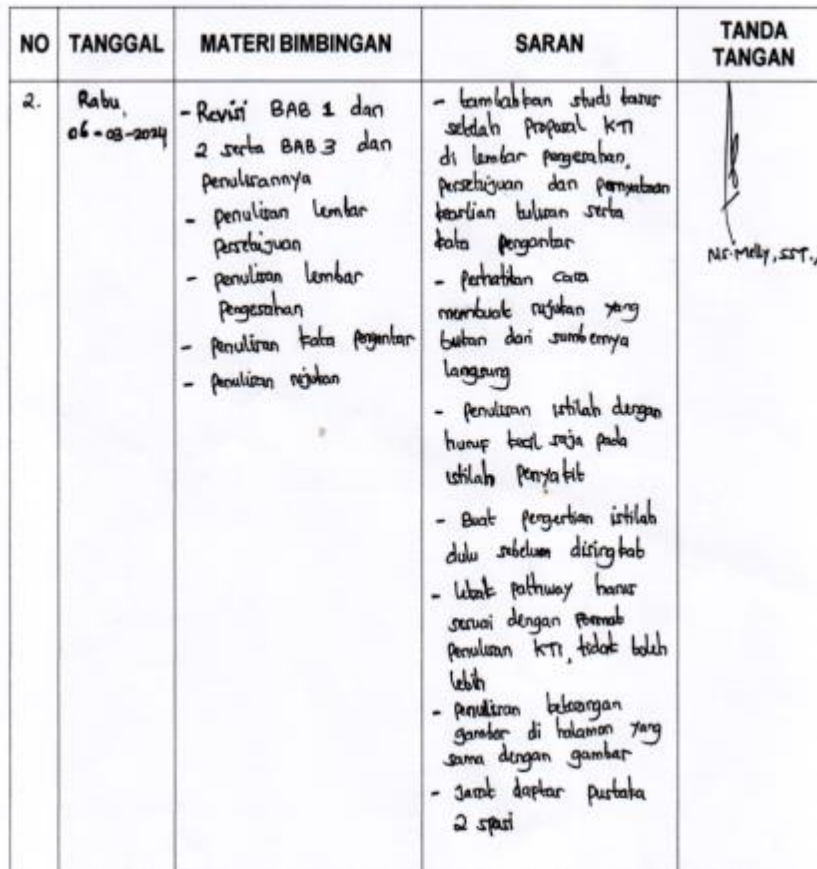 NO TANGGAL MATERI BIMBINGAN SARAN TANDA TANGAN
2.
Rabu,
06-03-2024
- Revisi BAB 1 dan
2 serta BAB 3 dan
Penulisannya
- penulisan lembar
Persetujuan
- penulisan lembar
Pengesahan
- penulisan kata pengantar
- penulisan rujukan
- tambahkan studi kasus
setelah Proposal KTI
di lembar pengesahan,
persetujuan dan pernyataan
keaslian tulisan serta
kata pengantar
- perhatikan cara
membuat rujukan yang
bukan dari sumbernya
langsung
- penulisan istilah dengan
huruf kecil saja pada
istilah penyakit
- Buat pengertian istilah
dulu sebelum disingkat
- letak pathway harus
sesuai dengan format
penulisan KTI, tidak boleh
lebih
- penulisan keterangan
gambar di halaman yang
sama dengan gambar
- Jarak daptar pustaka
2 spasi
Ns. Melly, SST.,